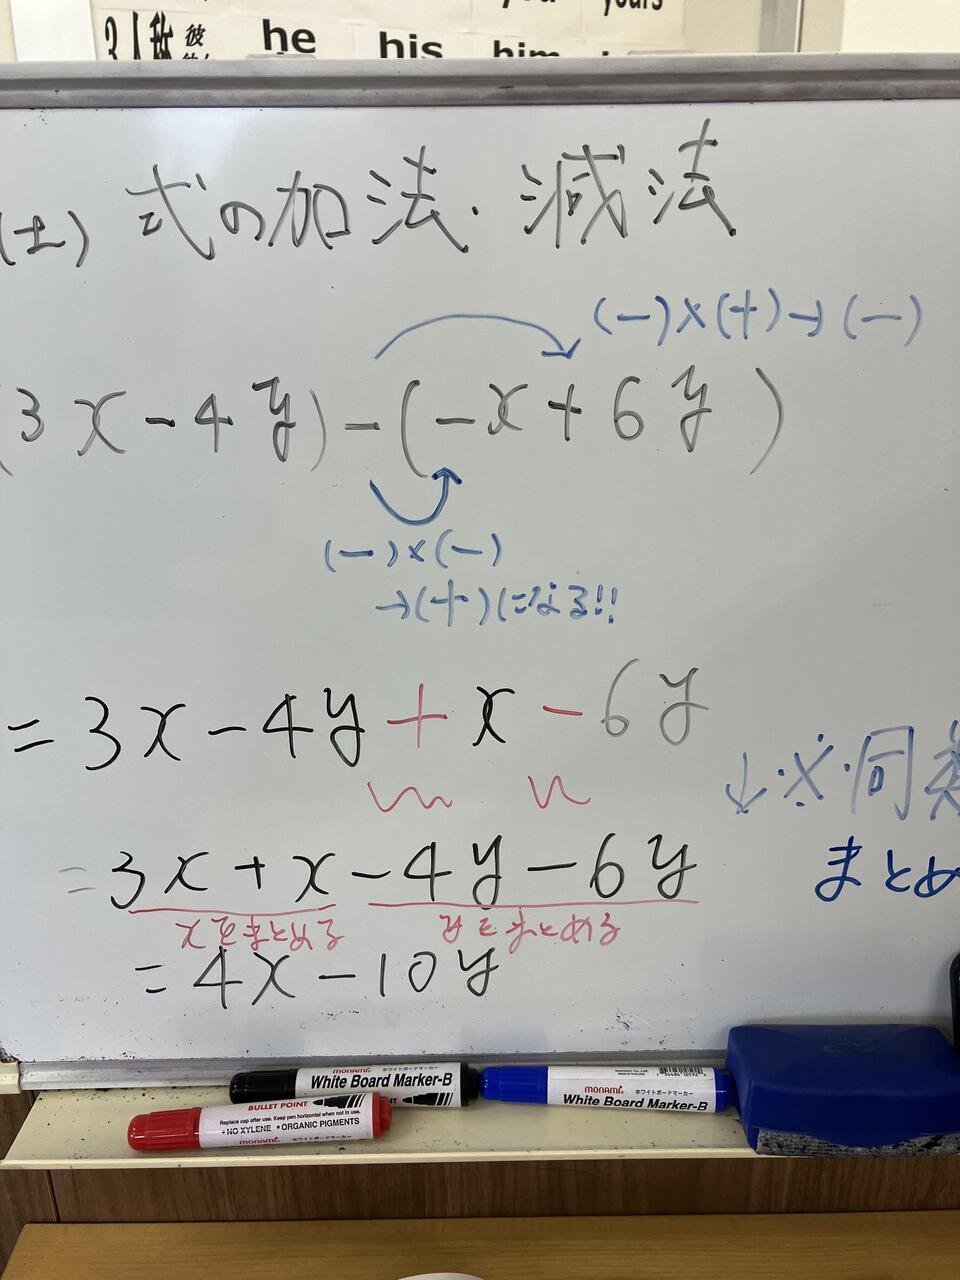 3人称 彼 he his him
(±) 式の加法・減法
(-)×(+)→(-)
(3x-4y)-(-x+6y)
(-)×(-)
→(+)になる!!
=3x-4y+x-6y
↓※同類
まとめ
=3x+x-4y-6y
xをまとめる yをまとめる
=4x-10y
monami ホワイトボードマーカー
White Board Marker-B
monami ホワイトボードマーカー
White Board Marker-B
BULLET POINT
Replace cap after use. Keep pen horizontal when not in use.
• NO XYLENE • ORGANIC PIGMENTS
monami ホワイトボードマーカー